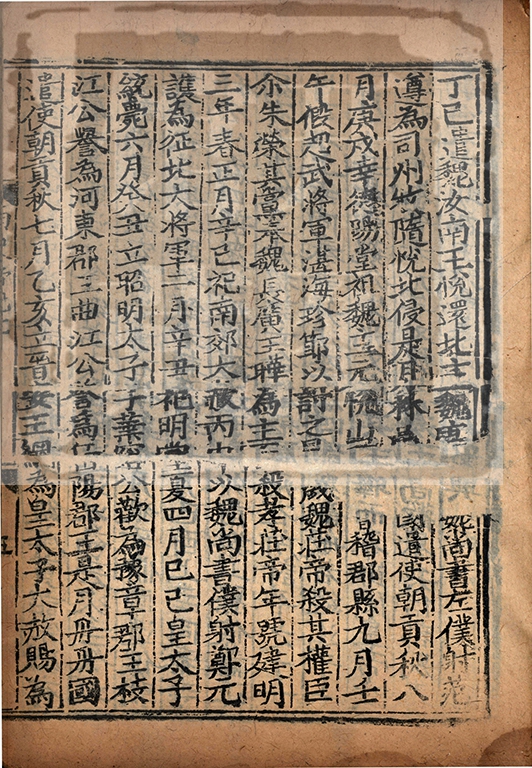 丁巳遣魏汝南王悅還北主魏庚尚書左僕射范
遵為司州牧隨悅北侵是月林邑國遣使朝貢秋八
月庚戌幸德陽堂祖魏主元悅山稽郡縣九月壬
午假超武將軍湛海珍節以討之是歲魏莊帝殺其權臣
尒朱榮其黨奉魏長廣王曄為主殺孝莊帝年號建明
三年春正月辛巳祀南郊大赦丙申以魏尚書僕射鄭元
護為征北大將軍二月辛丑祀明堂夏四月己巳皇太子
統薨六月癸丑立昭明太子子華容公歡為豫章郡王枝
江公譽為河東郡王曲江公詧為岳陽郡王是月丹丹國
遣使朝貢秋七月乙亥立晉安王綱為皇太子大赦賜為
五